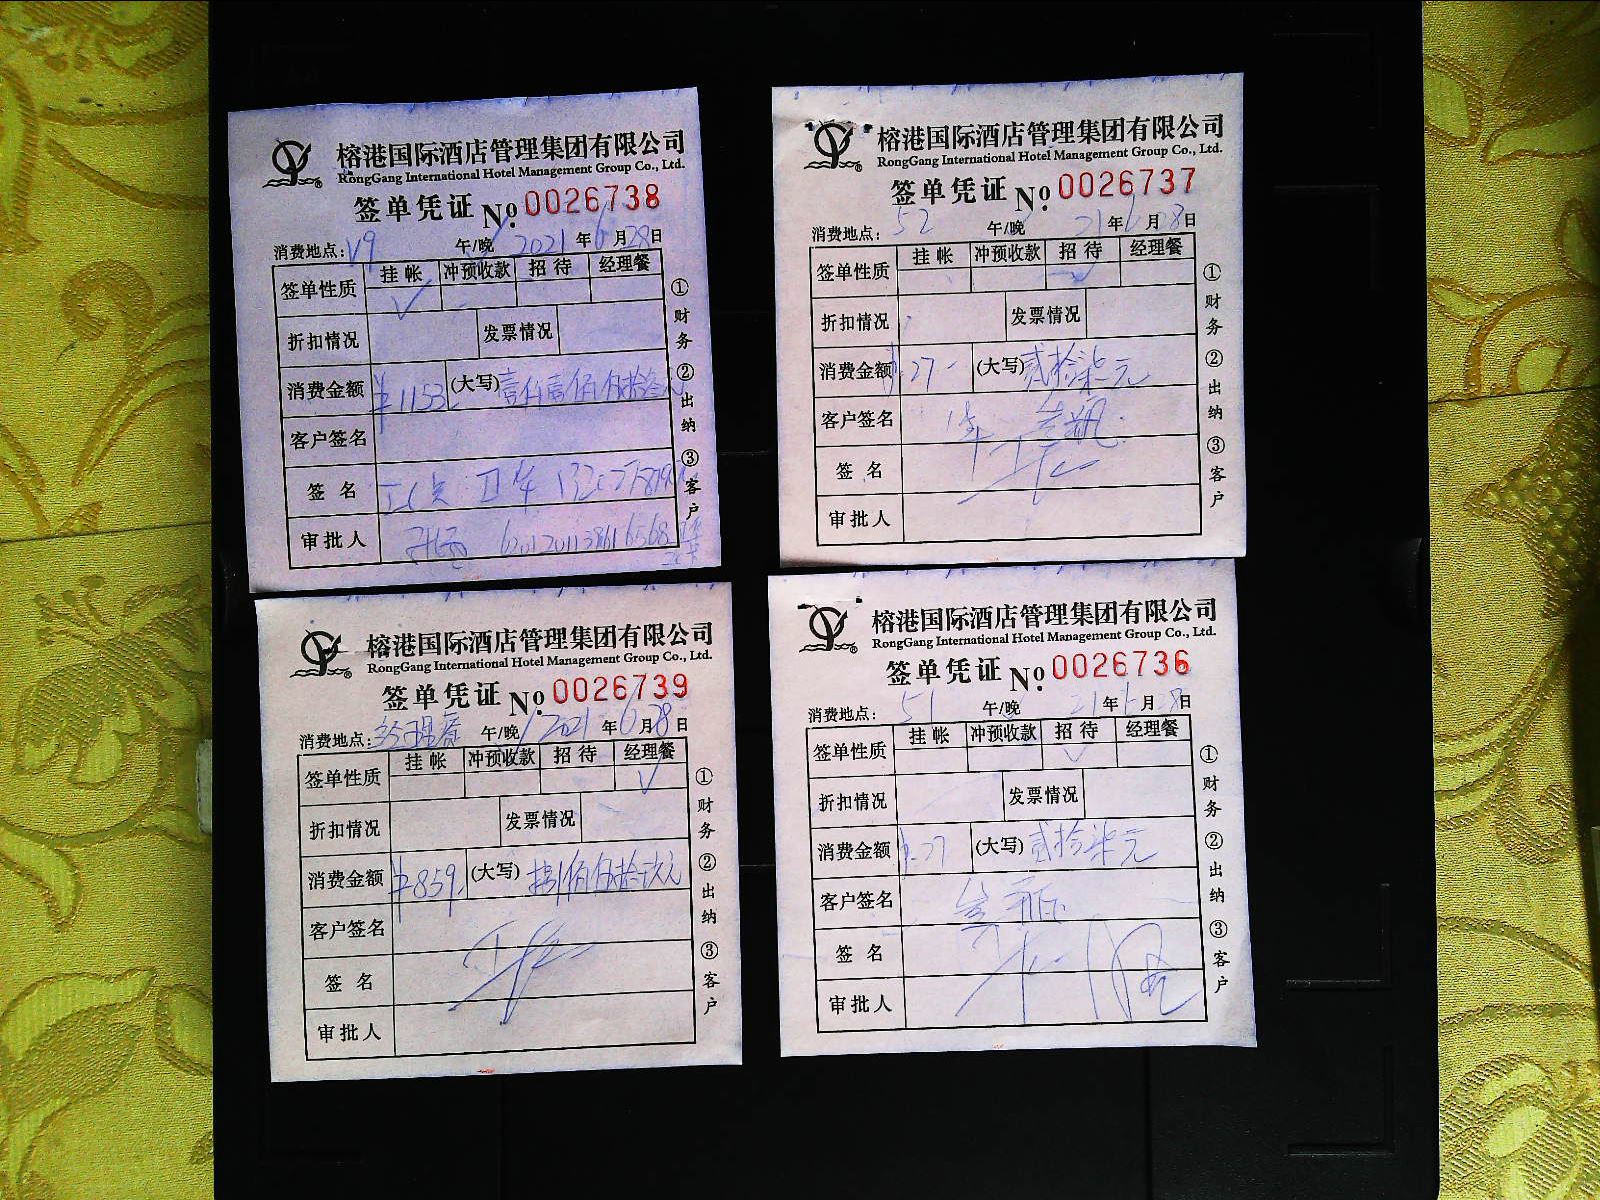 榕港国际酒店管理集团有限公司
RongGang International Hotel Management Group Co., Ltd.
签单凭证 No. 0026738
消费地点: V9 午/晚 2021年6月28日
签单性质 挂帐 冲预收款 招待 经理餐
✓
折扣情况 发票情况
消费金额 ¥1153. (大写) 壹仟壹佰伍拾叁元
客户签名
签名
审批人
①财务 ②出纳 ③客户
榕港国际酒店管理集团有限公司
RongGang International Hotel Management Group Co., Ltd.
签单凭证 No. 0026737
消费地点: 52 午/晚 21年6月28日
签单性质 挂帐 冲预收款 招待 经理餐
✓
折扣情况 发票情况
消费金额 ¥27- (大写) 贰拾柒元
客户签名
签名
审批人
①财务 ②出纳 ③客户
榕港国际酒店管理集团有限公司
RongGang International Hotel Management Group Co., Ltd.
签单凭证 No. 0026739
消费地点: 经理餐 午/晚 2021年6月28日
签单性质 挂帐 冲预收款 招待 经理餐
✓
折扣情况 发票情况
消费金额 ¥859. (大写) 捌佰伍拾玖元
客户签名
签名
审批人
①财务 ②出纳 ③客户
榕港国际酒店管理集团有限公司
RongGang International Hotel Management Group Co., Ltd.
签单凭证 No. 0026736
消费地点: 51 午/晚 21年6月28日
签单性质 挂帐 冲预收款 招待 经理餐
✓
折扣情况 发票情况
消费金额 ¥27 (大写) 贰拾柒元
客户签名
签名
审批人
①财务 ②出纳 ③客户